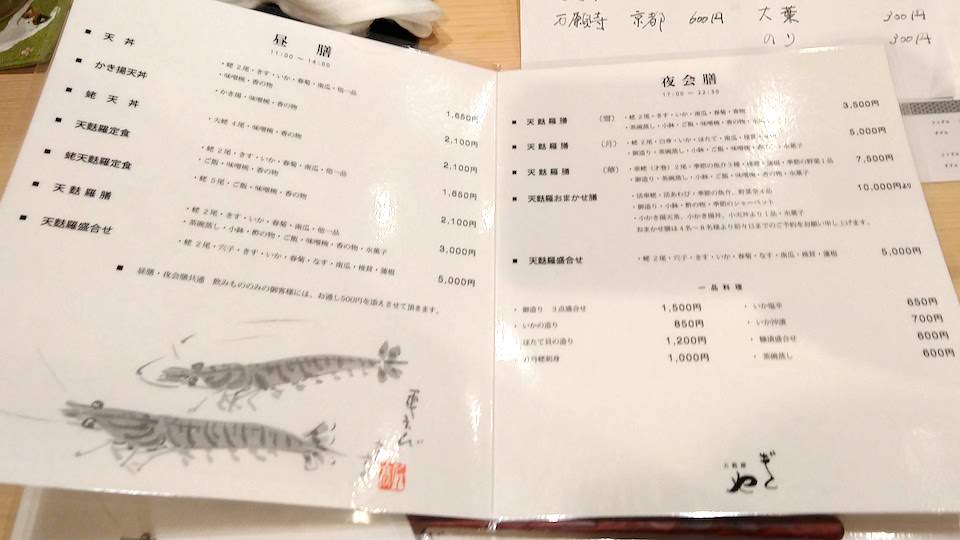 石願寺 京都 600円 大葉 300円
のり 300円
昼膳
11:00 ～ 14:00
■ 天丼
・蛯 2尾・きす・いか・春菊・南瓜・他一品
・味噌椀・香の物
1,650円
■ かき揚天丼
・かき揚・味噌椀・香の物
2,100円
■ 蛯天丼
・大蛯 4尾・味噌椀・香の物
2,100円
■ 天麩羅定食
・蛯 2尾・きす・いか・春菊・南瓜・他一品
・ご飯・味噌椀・香の物
1,650円
■ 蛯天麩羅定食
・蛯 5尾・ご飯・味噌椀・香の物
2,100円
■ 天麩羅膳
・蛯 2尾・きす・いか・春菊・南瓜・他一品
・茶碗蒸し・小鉢・酢の物・ご飯・味噌椀・香の物・水菓子
3,000円
■ 天麩羅盛合せ
・蛯 2尾・穴子・きす・いか・春菊・なす・南瓜・椎茸・蓮根
5,000円
■ 昼膳・夜会膳共通 飲みもののみの御客様には、お通し500円を添えさせて頂きます。
夜会膳
17:00 ～ 22:30
■ 天麩羅膳 (雪)
・蛯 2尾・きす・いか・南瓜・春菊・香物
・茶碗蒸し・小鉢・ご飯・味噌椀・香の物・水菓子
3,500円
■ 天麩羅膳 (月)
・蛯 2尾・白身・いか・ほたて・南瓜・椎茸
・御造り・茶碗蒸し・小鉢・ご飯・味噌椀・香の物・水菓子
5,000円
■ 天麩羅膳 (華)
・車蛯(才巻) 2尾・季節の魚介3種・椎茸・蓮根・季節の野菜1品
・御造り・茶碗蒸し・小鉢・ご飯・味噌椀・香の物・水菓子
7,500円
■ 天麩羅おまかせ膳
・活車蛯・活あわび・季節の魚介、野菜全4品
・御造り・小鉢・酢の物・季節のシャーベット
・小かき揚天茶、小かき揚丼、小天丼より1品・水菓子
おまかせ膳は4名～8名様より前々日までのご予約をお願い申し上げます。
10,000円より
■ 天麩羅盛合せ
・蛯 2尾・穴子・きす・いか・春菊・なす・南瓜・椎茸・蓮根
5,000円
一品料理
・御造り 3点盛合せ 1,500円
・いかの造り 850円
ほたて貝の造り 1,200円
刺身 1,000円
・いか塩辛 650円
・いか沖漬 700円
・糠漬盛合せ 600円
・茶碗蒸し 600円
天麩羅